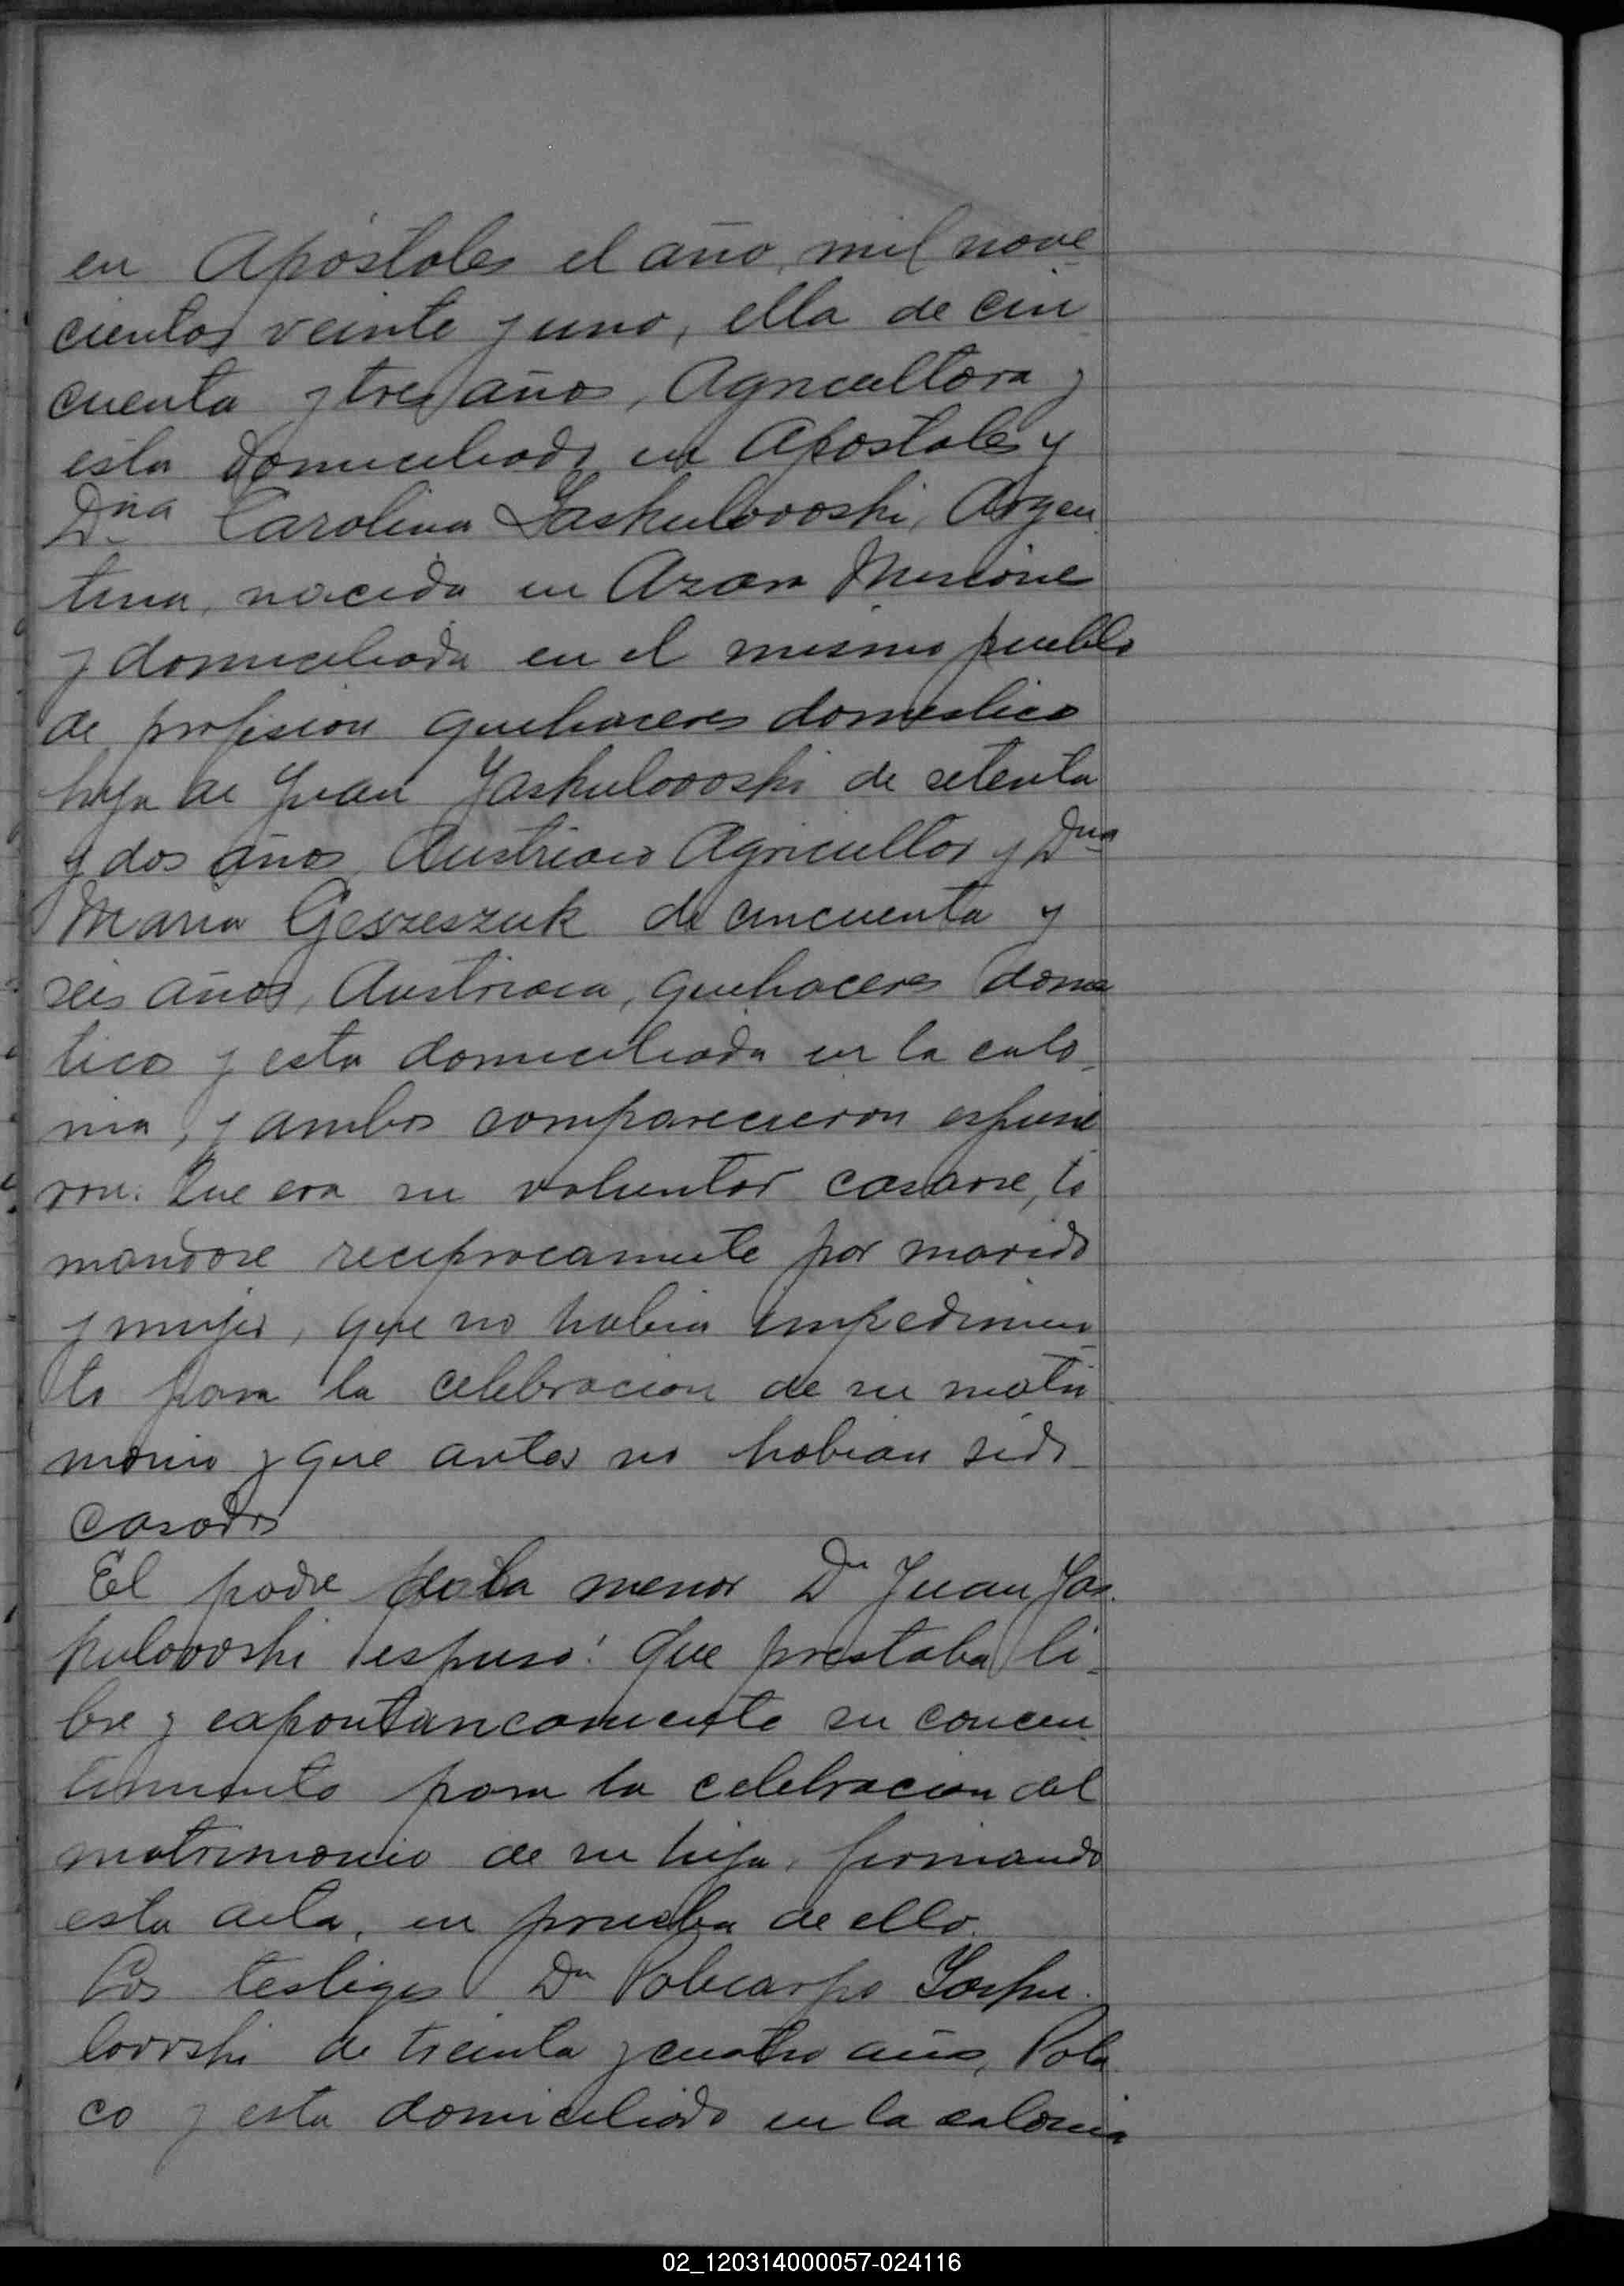 en Apóstoles el año, mil nove
cientos veinte y uno, ella de cin
cuenta y tres años, Agricultora y
esta domiciliada en Apostoles y
Dña Carolina Jaskulowoski, Argen
tina, nacida en Azara Misione
y domiciliada en el mismo pueblo
de profision quehaceres domestico
hija de Juan Jaskulowoski de setenta
y dos años, Austriaco Agricultor y Dña
Maria Geszeszuk de cincuenta y
seis años, Austriaca, quehaceres domes
tico y esta domiciliada en la colo_
nia, y ambos comparecieron espusie
ron: Que era su voluntad casarse, to
mandose reciprocamente por marido
y mujer, que no habia impedimen
to para la celebracion de su matri
monio y que antes no habian sido
casados
El padre de la menor Dn Juan Jas_
kulowoski espuso: Que prestaba li_
bre y expontaneamente su concen
timiento para la celebracion del
matrimonio de su hija, firmando
esta acta, en prueba de ello.
Los testigos Dn Policarpo Jasku_
lowski de treinta y cuatro años, Pola
co y esta domiciliado en la colonia
02_120314000057-024116